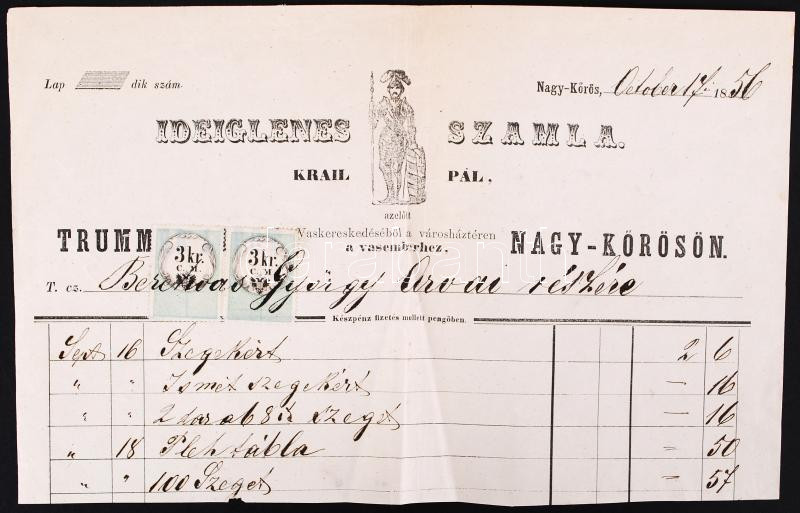 Lap dik szám.
Nagy-Kőrös, October 17. 1856
IDEIGLENES SZAMLA.
KRAIL PÁL,
azelőtt
TRUMM Vaskereskedéséből a városháztéren NAGY-KŐRÖSÖN.
a vasemberhez,
3 kr. 3 kr.
C. M. C. M.
T. cz. György Arvai részére
Készpénz fizetés mellett pengőben.
Sept 16 Szegekért 2 6
" " Ismét szegekért — 16
" " 2 darab szeget — 16
" 18 Pleh tábla — 50
" " 100 Szeget — 57